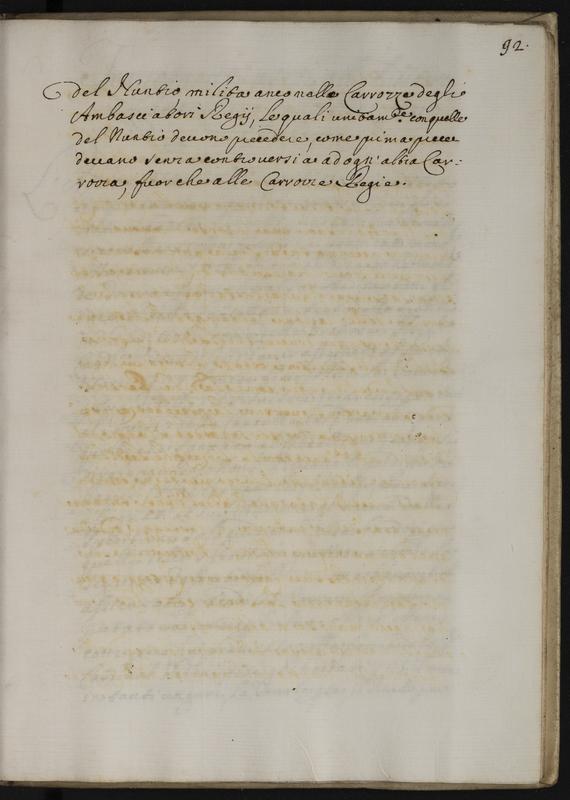 92.
del Nuntio milita anco nelle Carrozze degli
Ambasciatori Regij, le quali unitam.te con quelle
del Nuntio devono precedere, come prima prece
devano senza controversia ad ogn' altra Car-
rozza, fuor che alle Carrozze Regie.